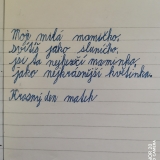 Moje milá maminko,
svítíš jako sluníčko,
jsi ta nejlepší maminka,
jako nejkrásnější květinka.
Krásný den matek